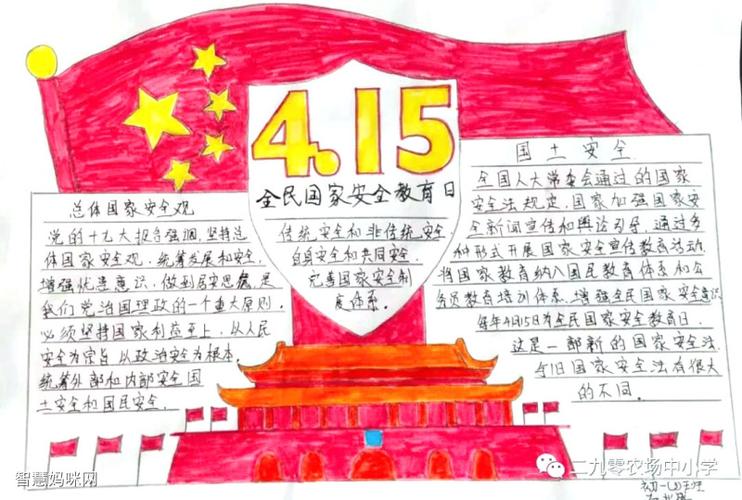 4.15
全民国家安全教育日
传统安全和非传统安全
自身安全和共同安全.
完善国家安全制
度体系.
总体国家安全观
党的十九大报告强调,坚持总
体国家安全观,统筹发展和安全,
增强忧患意识,做到居安思危是
我们党治国理政的一个重大原则.
必须坚持国家利益至上,以人民
安全为宗旨,以政治安全为根本.
统筹外部和内部安全国
土安全和国民安全.
国土安全
全国人大常委会通过的国家
安全法规定,国家加强国家安
全新闻宣传和舆论引导,通过多
种形式开展国家安全宣传教育活动,
将国家教育纳入国民教育体系和公
务员教育培训体系.增强全民国家安全意识
每年4月15日为全民国家安全教育日.
这是一部新的国家安全法
与旧国家安全法有很大
的不同.
智慧妈咪网
二九零农场中小学